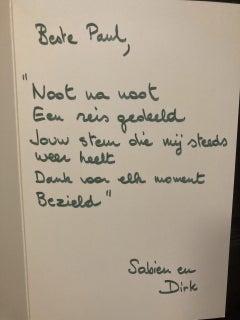 Beste Paul,
"Noot na noot
Een reis gedeeld
Jouw stem die mij steeds
weer heelt
Dank voor elk moment
Bezield"
Sabien en
Dirk